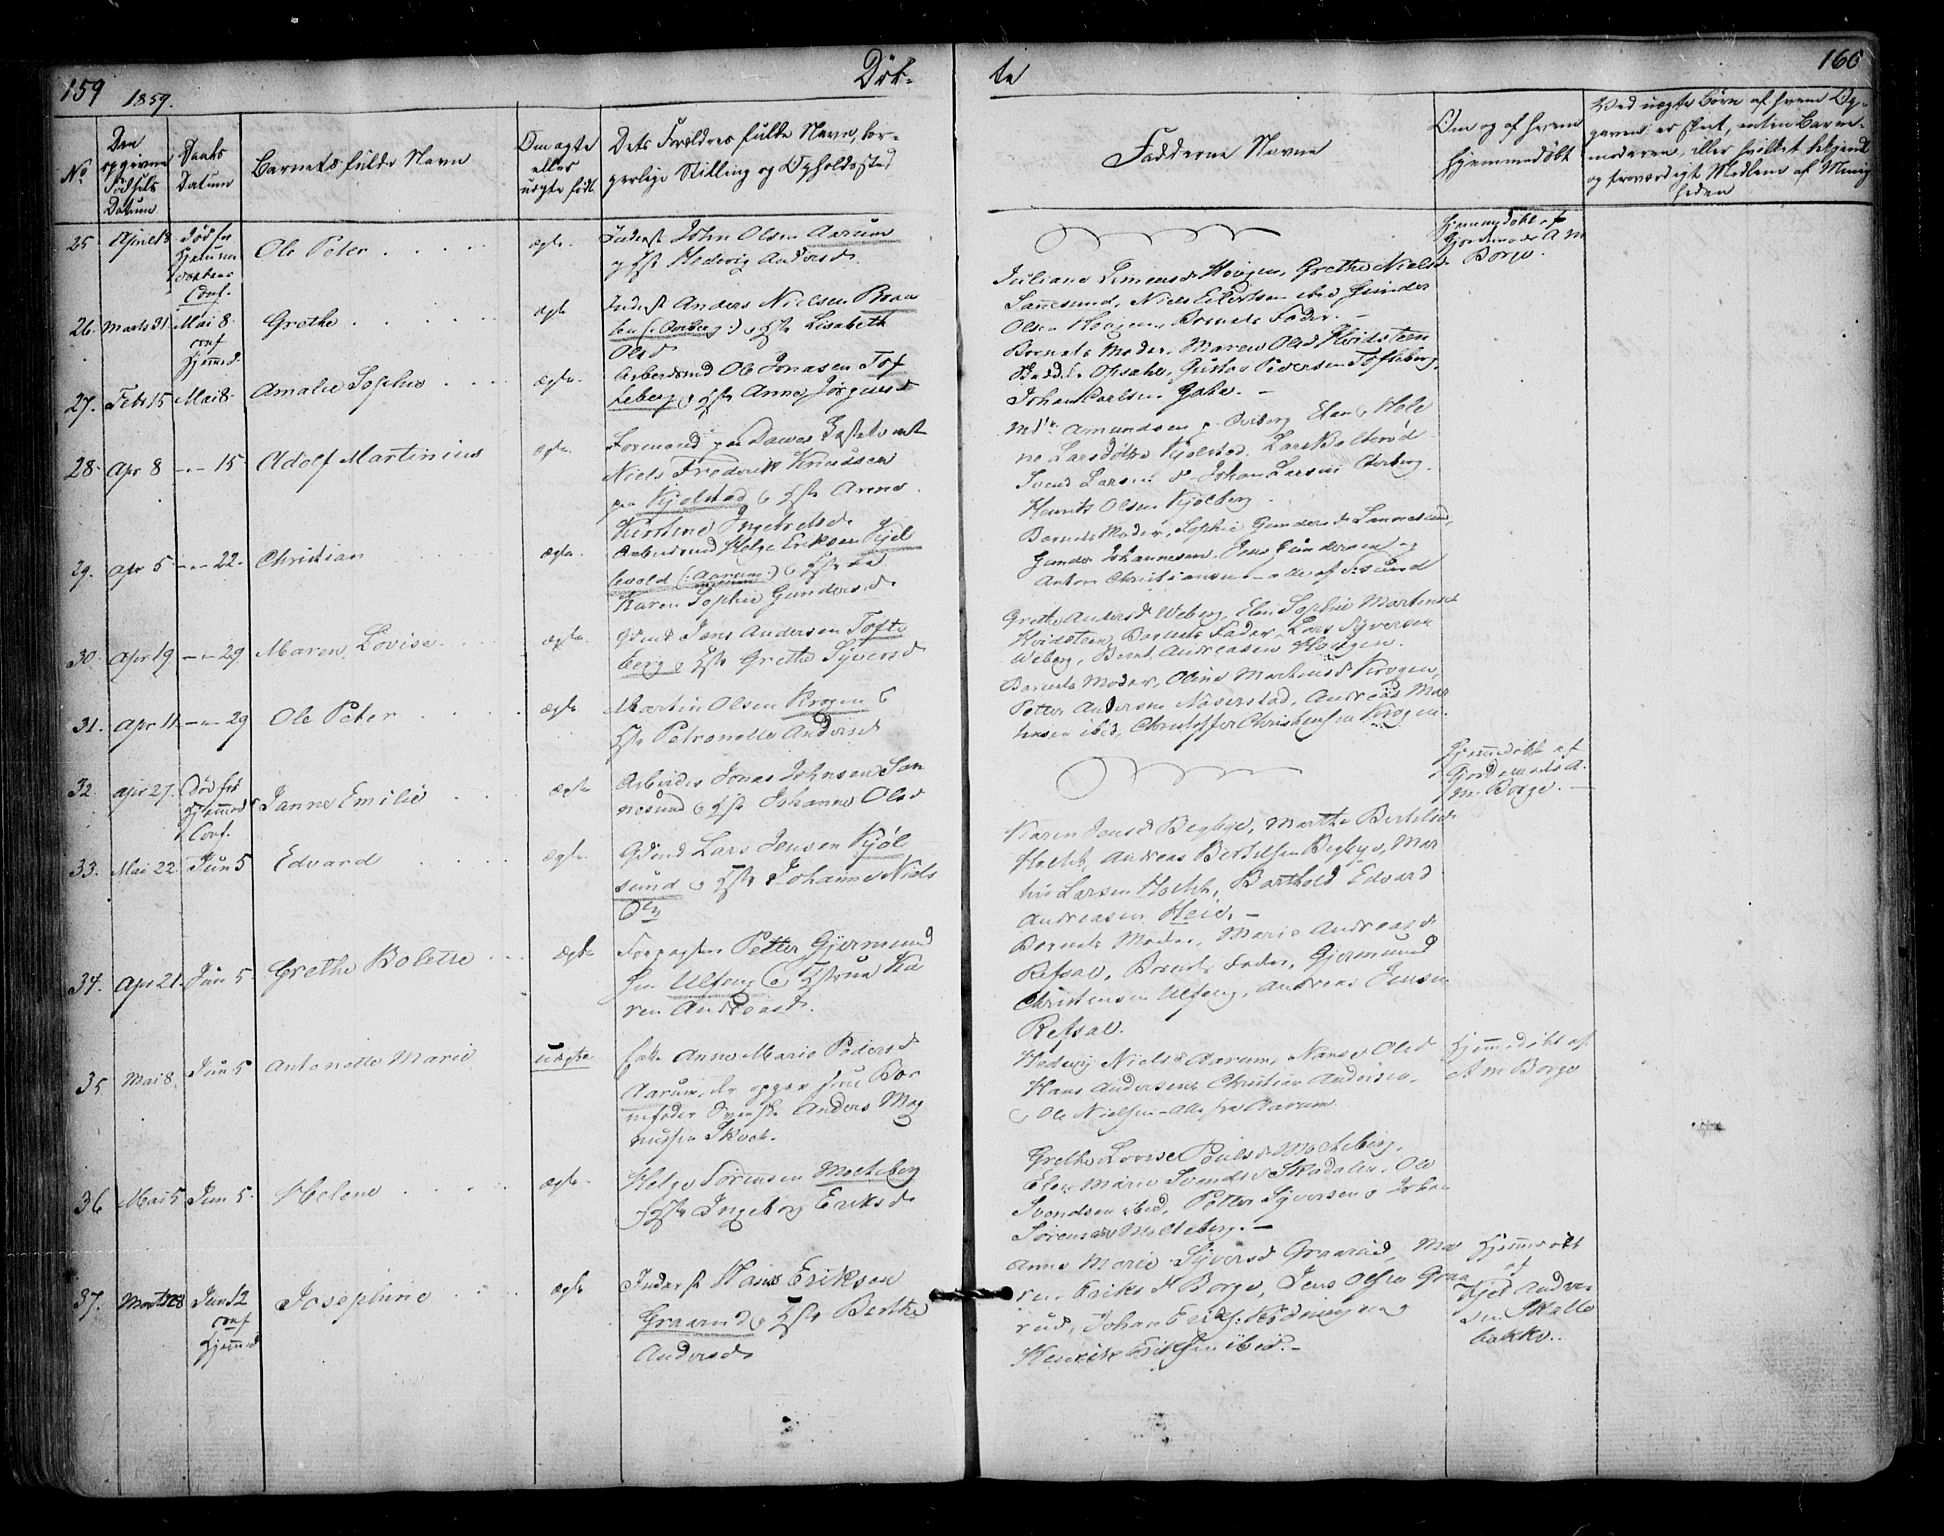 159
1859.
Døb-
te
160
No
Den
opgivne
Fødsels
Datum
Daabs
Datum
Barnets fulde Navn
Om ægte
eller
uægte født
Dets Forældres fulde Navn, bor-
gerlige Stilling og Opholdssted
Faddernes Navne
Om og af hvem
hjemmedøbt
Ved uægte Børn af hvem Op-
gaven er skeet, enten Barne-
moderen, eller hvilket bekjendt
og troværdigt Medlem af Menig
heden
25 April 18 Død før
Hjemme
daabens
Conf.
Ole Peter
ægte.
Inderst John Olsen Aarum
og Hst Hedevig Andersd.
Hjemmedøbt af
Gjordemoder A M
Borge.
26. Marts 31 Mai 8.
conf
Hjemmed.
Grethe
ægte
Inderst Anders Nielsen Braa
ten (: Ørberg :) & Hst Lisabeth
Olsd
Juliane Simensd Haugen, Grethe Nielsd
Sannesund, Niels Eilertsen ibid Gunder
Olsen Haugen, Barnets Fader. -
27. Febr 15 Mai 8.
Amalie Sophie
ægte.
Arbeidsmd Ole Jonasen Tof
teberg & Hst Anne Jørgensd
Barnets Moder, Maren Olsd Hvidsteen
Opsahl, Gustav Pedersen Tofteberg,
Johan Carlsen Gahr. -
28. Apr 8 -"- 15
Adolf Martinius
ægte.
Formand paa
Niels Frederik Knudsen
paa Kjølstad & Hst Anne
Kirstine Ingebretsd.
Amundsen p. Ørberg Elen & Hele
ne Larsdøttre Kjølstad. Lars Bolterød
Svend Larsen & Johan Larsen Ørberg.
Henrik Olsen Kjølberg.
29. Apr 5 -"- 22.
Christian
ægte.
Arbeidsmd Helge Eriksen Kjøl
(: Aarum :) & Hst
Karen Sophie Gundersd.
Barnets Moder, Sophie Gundersd Sannesund,
Gunder Johannesen. Jens Gundersen og
Anton Christiansen - alle af S:sund
30. Apr 19 -"- 29
Maren Lovise.
ægte.
Gdmd Jens Andersen Tofte
berg & Hst Grethe Syversd
Grethe Andersd Weberg, Elen Sophie Martinsd
Hvidsteen, Barnets Fader, Lars Syversen
Weberg, Bernt Andreasen Haugen.
31. Apr 11 -"- 29
Ole Peter
ægte
Martin Olsen Krogen &
Hst Petronelle Andersd
Barnets Moder, Oline Martinusd Krogen,
Petter Andersen Naverstad, Andreas Mar
tinsen ibid, Christoffer Christensen Krogen.
32. Apr 27. Død før
Hjemmed
Conf.
Janne Emilie
ægte.
Arbeider Jonas Johnsen San
nesund & Hst Johanne Olsd
Hjemmedøbt af
Gjordemoder A.
M. Borge. -
33. Mai 22 Jun 5
Edvard
ægte.
Gdmd Lars Jensen Kjøl
sund & Hst Johanne Niels
Karen Jensd Begbye, Marthe Bertelsd
Holth, Andreas Bertelsen Begbye, Mar
tin Larsen Holth, Barthold Edvard
Andreasen Heie. -
34. Apr 21. Jun 5
Grethe Bolette
ægte
Forpagter Petter Gjermund
sen Ulfeng & Hstru Ka
ren Andreasd.
Barnets Moder, Marie Andreasd
Refsal, Barnets Fader, Gjermund
Christensen Ulfeng, Andreas Jensen
Refsal.
35 Mai 8 Jun 5
Antonette Marie
uægte.
Anne Marie Pedersd
Aarum, der opgav som Bar
nefader Svenske Anders Mag
nussen
Hedevig Nielsd Aarum, Olsd
Hans Andersen, Christian Andersen,
& Ole Nielsen - Alle fra Aarum
Hjemmedøbt af
A M Borge
36 Mai 5 Jun 5.
Helene
ægte.
Helge Sørensen Molteberg
Hst Ingeborg Eriksd
Grethe Lovise Poulsd Molteberg.
Elen Marie Svendsd Skadalen, Ole
Svendsen ibid, Petter Syversen & Johan
Sørensen Molteberg. -
37. Marts 28 Jun 12
conf
Hjemmed
Josephine
ægte
Inderst Hans Eriksen
Graarud & Hst Berthe
Andersd.
Anne Marie Syversd Graarud, Ma
ren Eriksd Borge, Jens Olsen Graa
rud, Johan
Henrik Eriksen ibid. -
Hjemmedøbt
af
Kjel Ander
sen Skalle
bakke.